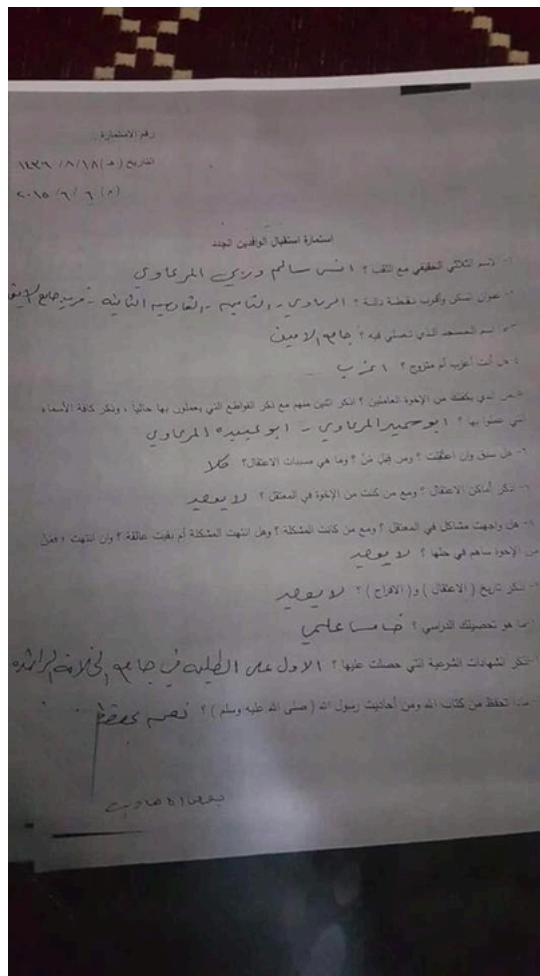 رقم الاستمارة :
التاريخ (هـ) ١٨ / ٨ / ١٤٣٦
(م) ٦ / ٦ / ٢٠١٥
استمارة استقبال الوافدين الجدد
١- الاسم الثلاثي الحقيقي مع اللقب ؟ انس سالم المرعاوي
٢- عنوان السكن وأقرب نقطة دالة ؟ الثانيه - قريب جامع
٣- اسم المسجد الذي تصلي فيه ؟ جامع الامين
٤- هل أنت أعزب أم متزوج ؟ اعزب
٥- من لدي يكفلك من الإخوة العاملين ؟ اذكر اثنين منهم مع ذكر القواطع التي يعملون بها حالياً ، وذكر كافة الأسماء
التي عملوا بها ؟ ابو حميد المرعاوي - ابو عبيده المرعاوي
٦- هل سبق وان اعتُقِلت ؟ ومن قِبَل مَنْ ؟ وما هي مسببات الاعتقال؟ كلا
٧- اذكر أماكن الاعتقال ؟ ومع من كنت من الإخوة في المعتقل ؟ لا يوجد
٨- هل واجهت مشاكل في المعتقل ؟ ومع من كانت المشكلة ؟ وهل انتهت المشكلة أم بقيت عالقة ؟ وان انتهت ؛ فمن
من الإخوة ساهم في حلها ؟ لا يوجد
اذكر تاريخ ( الاعتقال ) و( الافراج ) ؟ لا يوجد
ما هو تحصيلك الدراسي ؟ خامس علمي
اذكر الشهادات الشرعية التي حصلت عليها ؟ الاول على الطلبه في جامع الخلافه الراشده
ماذا تحفظ من كتاب الله ومن أحاديث رسول الله ( صلى الله عليه وسلم ) ؟
بعض الاحاديث